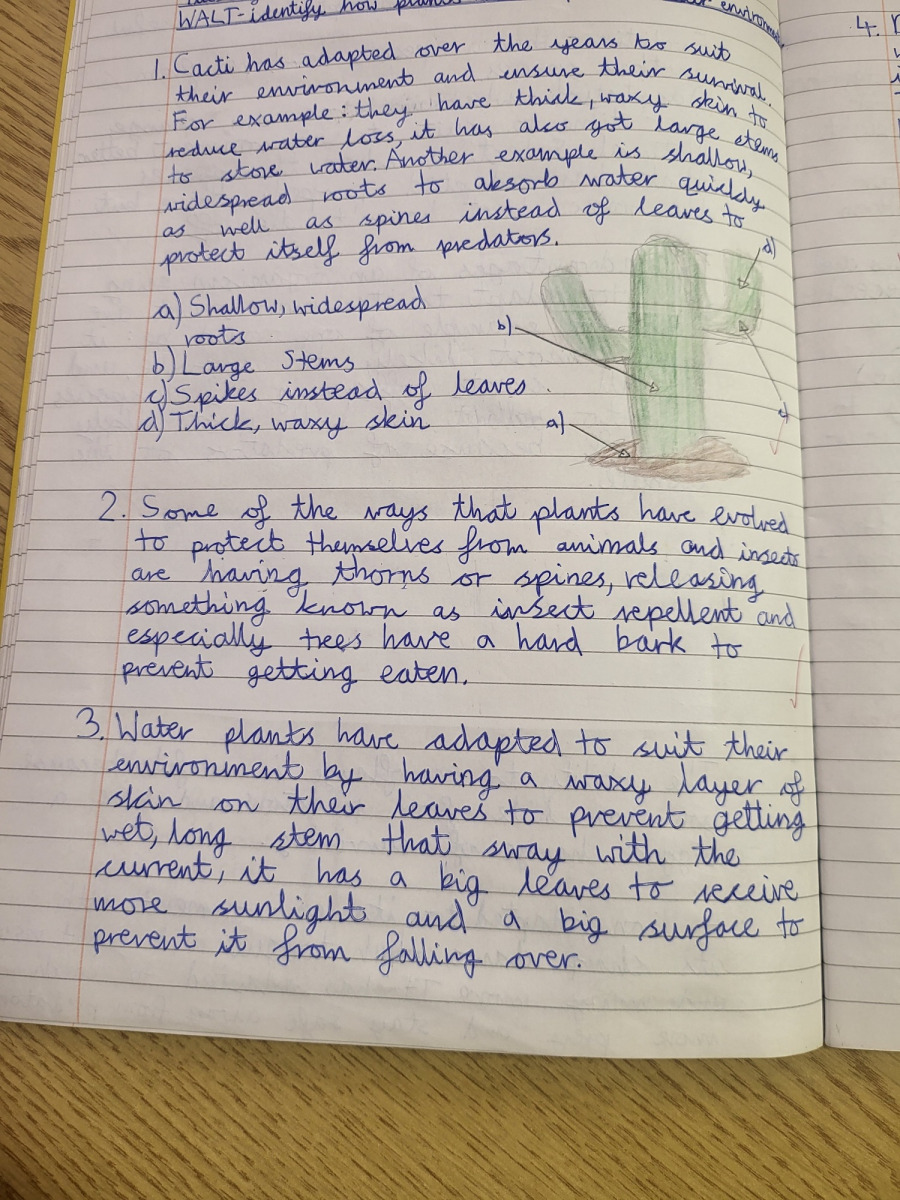 WALT- identify how plants environment
1. Cacti has adapted over the years to suit
their environment and ensure their survival.
For example: they have thick, waxy skin to
reduce water loss, it has also got large stems
to store water. Another example is shallow,
widespread roots to absorb water quickly
as well as spines instead of leaves to
protect itself from predators.
a) Shallow, widespread
roots
b) Large Stems
c) Spikes instead of leaves.
d) Thick, waxy skin
d)
b)
c)
a)
2. Some of the ways that plants have evolved
to protect themselves from animals and insects
are having thorns or spines, releasing
something known as insect repellent and
especially trees have a hard bark to
prevent getting eaten.
3. Water plants have adapted to suit their
environment by having a waxy layer of
skin on their leaves to prevent getting
wet, long stem that sway with the
current, it has a big leaves to receive
more sunlight and a big surface to
prevent it from falling over.
4.